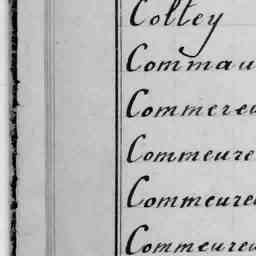 Coltey
Commau
Commereu
Commeure
Commeureu
Commeureu